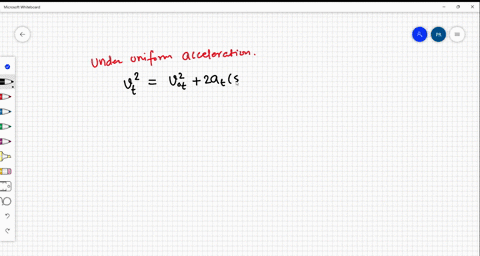 Microsoft Whiteboard
M
Under uniform acceleration.
v_t^2 = v_{ot}^2 + 2a_t(s